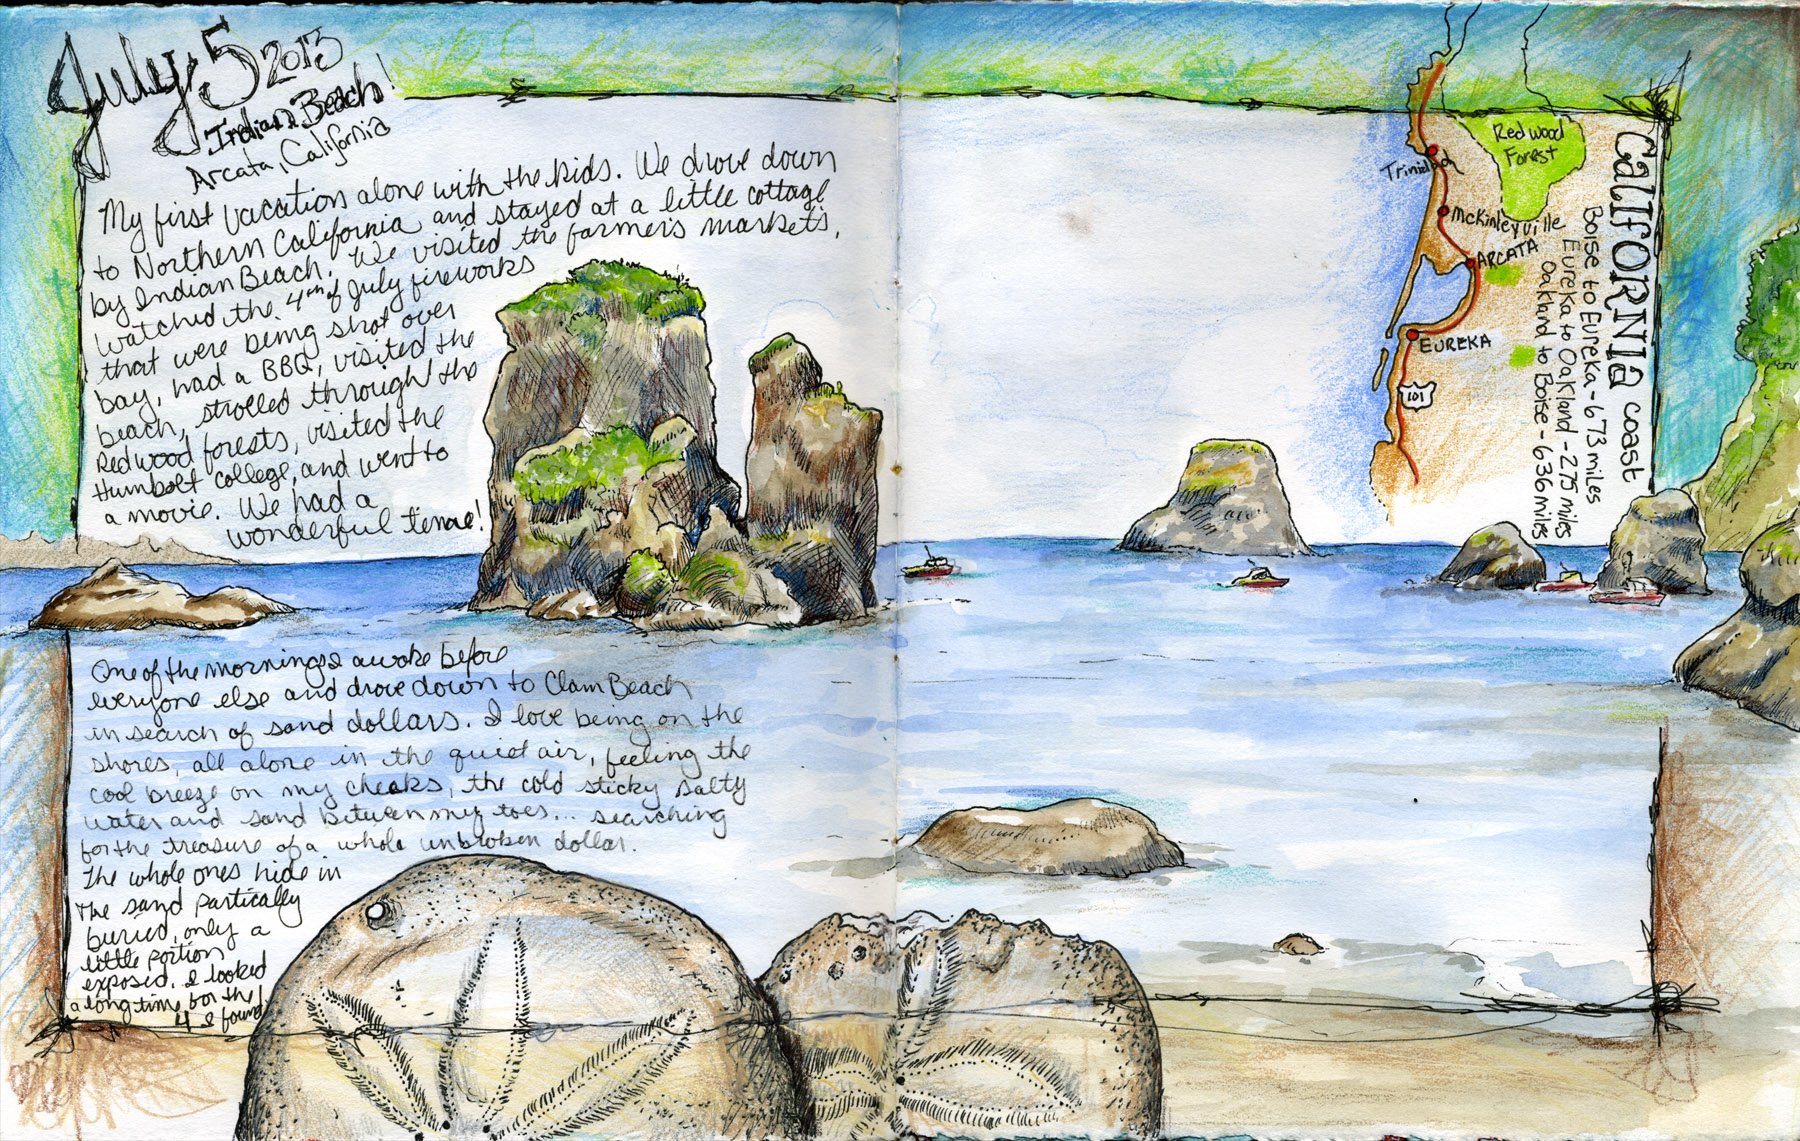 July 5 2013
Indian Beach!
Arcata, California
My first vacation alone with the kids. We drove down
to Northern California and stayed at a little cottage
by Indian Beach. We visited the farmer's markets,
watched the 4th of July fireworks
that were being shot over
bay, had a BBQ, visited the
beach, strolled through the
Redwood forests, visited the
Humbolt college, and went to
a movie. We had a
wonderful time!
One of the mornings I awoke before
everyone else and drove down to Clam Beach
in search of sand dollars. I love being on the
shores, all alone in the quiet air, feeling the
cool breeze on my cheaks, the cold sticky salty
water and sand between my toes... searching
for the treasure of a whole unbroken dollar.
The whole ones hide in
the sand partically
buried, only a
little portion
exposed. I looked
a long time for the
4 I found!
Redwood
Forest
Trinidad
McKinleyville
ARCATA
EUREKA
101
CALIFORNIA coast
Boise to Eureka - 673 miles
Eureka to Oakland - 275 miles
Oakland to Boise - 636 miles